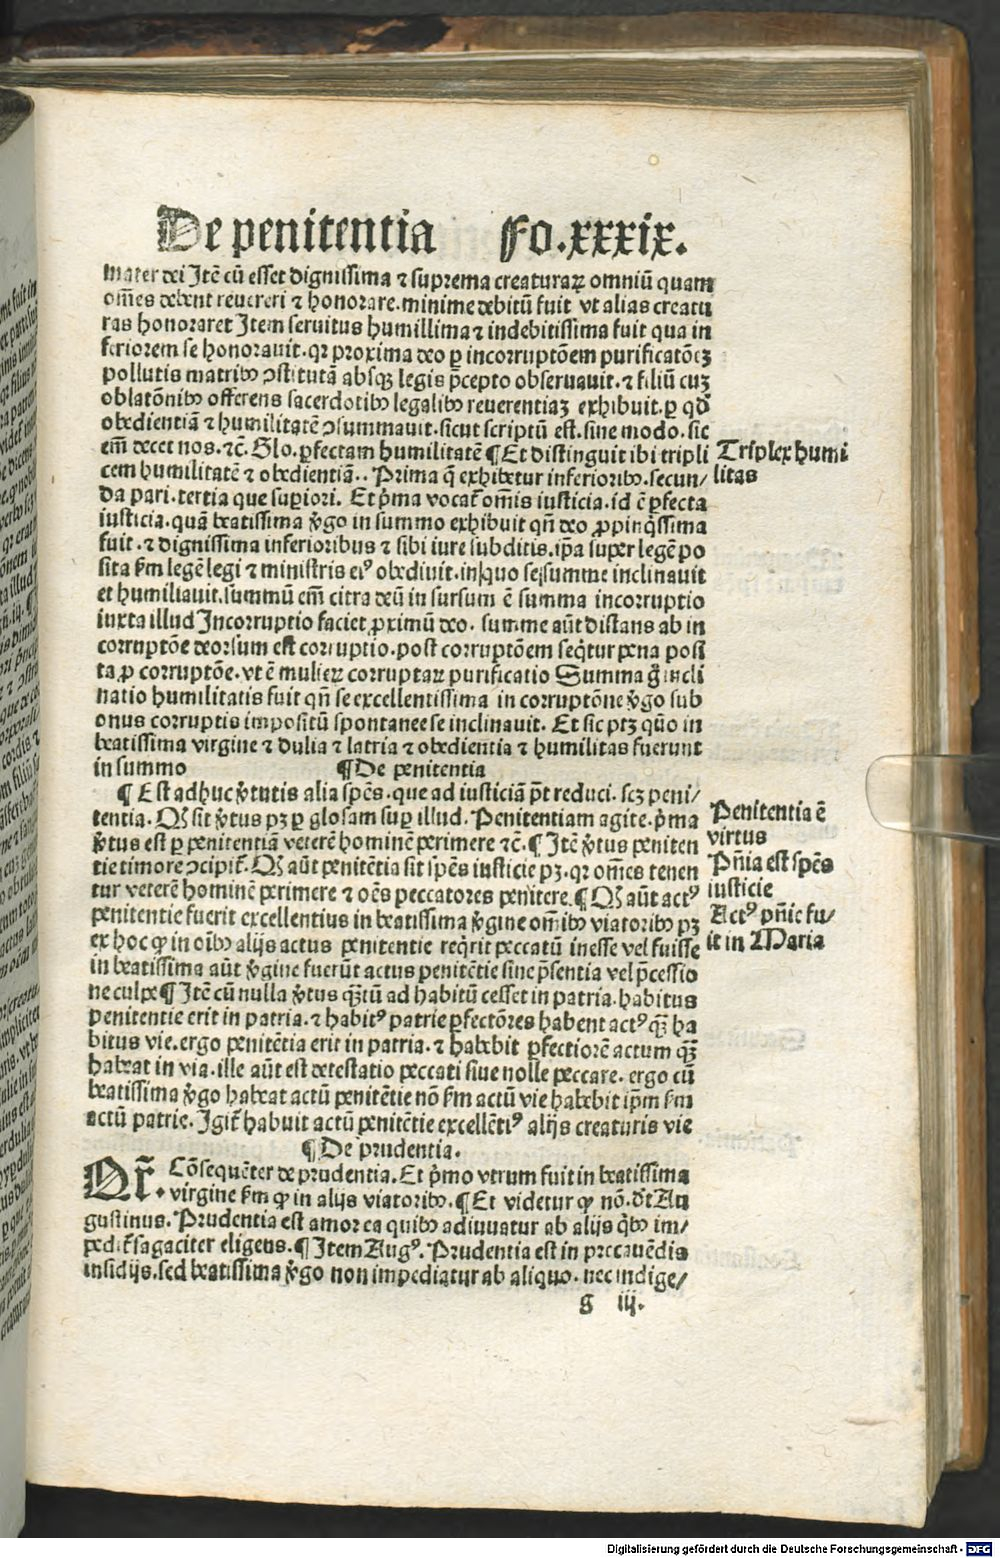 De penitentia Fo.xxxix.
mater dei Itẽ cũ esset dignissima ⁊ suprema creaturaꝝ omniũ quam
om̃es debent reuereri ⁊ honorare.minime debitũ fuit vt alias creatu
ras honoraret Item seruitus humillima ⁊ indebitissima fuit qua in
feriorem se honorauit.qꝛ proxima deo ꝑ incorruptõem purificatõeꝫ
pollutis matribꝰ ↄstitutã absqꝫ legis p̃cepto obseruauit.⁊ filiũ cuꝫ
oblatõnibꝰ offerens sacerdotibꝰ legalibꝰ reuerentiaꝫ exhibuit.ꝑ qď
obedientiã ⁊ humilitatẽ ↄsummauit.sicut scriptũ est.sine modo.sic
em̃ decet nos.⁊c̃. Glo.ꝑfectam humilitatẽ ¶ Et distinguit ibi tripli
cem humilitatẽ ⁊ obedientiã.. Prima q̃ exhibetur inferioribꝰ.secun/
da pari.tertia que suꝑiori. Et p̃ma vocat̃ om̃is iusticia.id ẽ ꝑfecta
iusticia.quã beatissima ṽgo in summo exhibuit qñ deo ꝓpinq̃ssima
fuit.⁊ dignissima inferioribus ⁊ sibi iure subditis.ip̃a super legẽ po
sita s̃m legẽ legi ⁊ ministris eiꝰ obediuit.in quo se summe inclinauit
et humiliauit.summũ em̃ citra deũ in sursum ẽ summa incorruptio
iuxta illud Incorruptio faciet ꝓximũ deo. summe aũt distans ab in
corruptõe deorsum est corruptio.post corruptõem seq̃tur pena posi
ta ꝓ corruptõe.vt ẽ mulieꝝ corruptaꝝ purificatio Summa g̃ incli
natio humilitatis fuit qñ se excellentissima in corruptõne ṽgo sub
onus corruptis impositũ spontanee se inclinauit. Et sic ptꝫ quõ in
beatissima virgine ⁊ dulia ⁊ latria ⁊ obedientia ⁊ humilitas fuerunt
in summo ¶ De penitentia
¶ Est adhuc ṽtutis alia sp̃es.que ad iusticiã p̃t reduci.scꝫ peni/
tentia. Qď sit ṽtus pꝫ ꝑ glosam suꝑ illud. Penitentiam agite.p̃ma
ṽtus est ꝑ penitentiã veterẽ hominẽ perimere ⁊c̃.¶ Itẽ ṽtus peniten
tie timore ↄcipit̃. Qď aũt penitẽtia sit sp̃es iusticie pꝫ.qꝛ om̃es tenen
tur veterẽ hominẽ perimere ⁊ oẽs peccatores penitere.¶ Qď aũt actꝰ
penitentie fuerit excellentius in beatissima ṽgine om̃ibꝰ viatoribꝰ pꝫ
ex hoc ꝙ in oĩbꝰ alijs actus penitentie req̃rit peccatũ inesse vel fuisse
in beatissima aũt ṽgine fuerũt actus penitẽtie sine p̃sentia vel p̃cessio
ne culpe ¶ Itẽ cũ nulla ṽtus qꝫ̃tũ ad habitũ cesset in patria.habitus
penitentie erit in patria.⁊ habitꝰ patrie ꝑfectõres habent actꝰ qꝫ̃ ha
bitus vie.ergo penitẽtia erit in patria.⁊ habebit ꝑfectiorẽ actum qꝫ̃
habeat in via.ille aũt est detestatio peccati siue nolle peccare.ergo cũ
beatissima ṽgo habeat actũ penitẽtie nõ s̃m actũ vie habebit ip̃m s̃m
actũ patrie. Igit̃ habuit actũ penitẽtie excellẽtiꝰ alijs creaturis vie
¶ De prudentia.
Qr̃. Cõsequẽter de prudentia. Et p̃mo vtrum fuit in beatissima
virgine s̃m ꝙ in alijs viatoribꝰ.¶ Et videtur ꝙ nõ.dt̃ Au
gustinus. Prudentia est amor ea quibꝰ adiuuatur ab alijs q̃bꝰ im/
pedit̃ sagaciter eligens.¶ Item Augꝰ. Prudentia est in precauẽdis
insidijs.sed beatissima ṽgo non impediatur ab aliquo.nec indige/
g iij.
Triplex humi
litas
Penitentia ẽ
virtus
Pñia est sp̃es
iusticie
Actꝰ pñie fu/
it in Maria
Digitalisierung gefördert durch die Deutsche Forschungsgemeinschaft - DFG